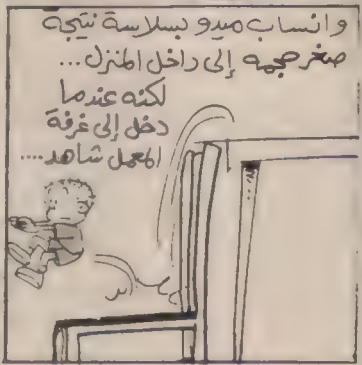 وانساب ميدو بسلاسة نتيجة
صغر حجمه إلى داخل المنزل...
لكنه عندما
دخل إلى غرفة
المعمل شاهد....